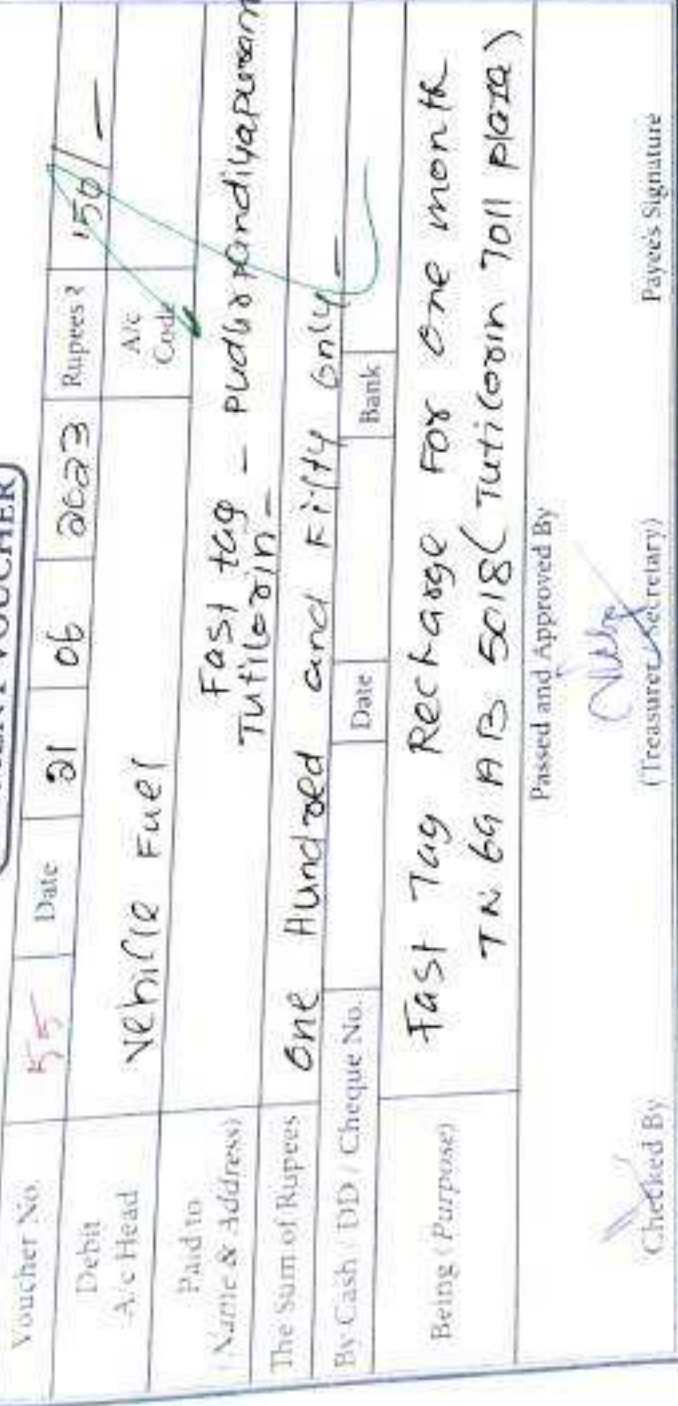 VOUCHER
Voucher No. 55 Date 21 06 2023 Rupees ₹ 150/-
Debit A/c Head Vehicle Fuel A/c Code
Paid to (Name & Address) Fast tag - Pudur pandiyapuram
Tuticorin -
The Sum of Rupees One Hundred and Fifty only -
By Cash / DD / Cheque No. Date Bank
Being (Purpose) Fast Tag Recharge For One month
TN 69 AB 5018 (Tuticorin Toll plaza)
Passed and Approved By
Checked By (Treasurer Secretary) Payee's Signature